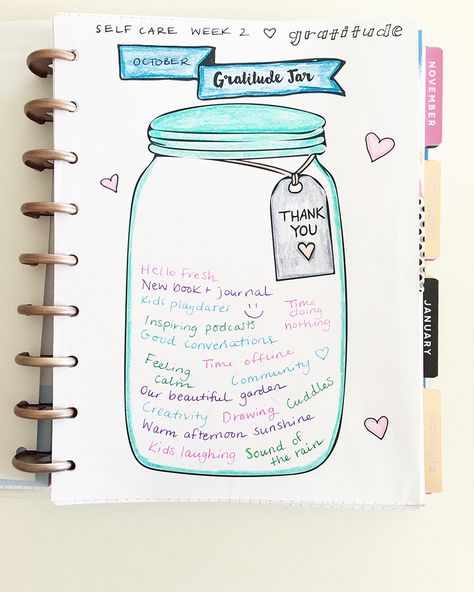 SELF CARE WEEK 2 ♡ gratitude
OCTOBER
Gratitude Jar
THANK
YOU
Hello Fresh
New book + journal
Kids playdates
Time
doing
nothing
Inspiring podcasts
Good conversations
Feeling
calm
Time offline
Community ♡
Our beautiful garden
Cuddles
Creativity
Drawing
Warm afternoon sunshine
Kids laughing
Sound of
the rain
NOVEMBER
JANUARY